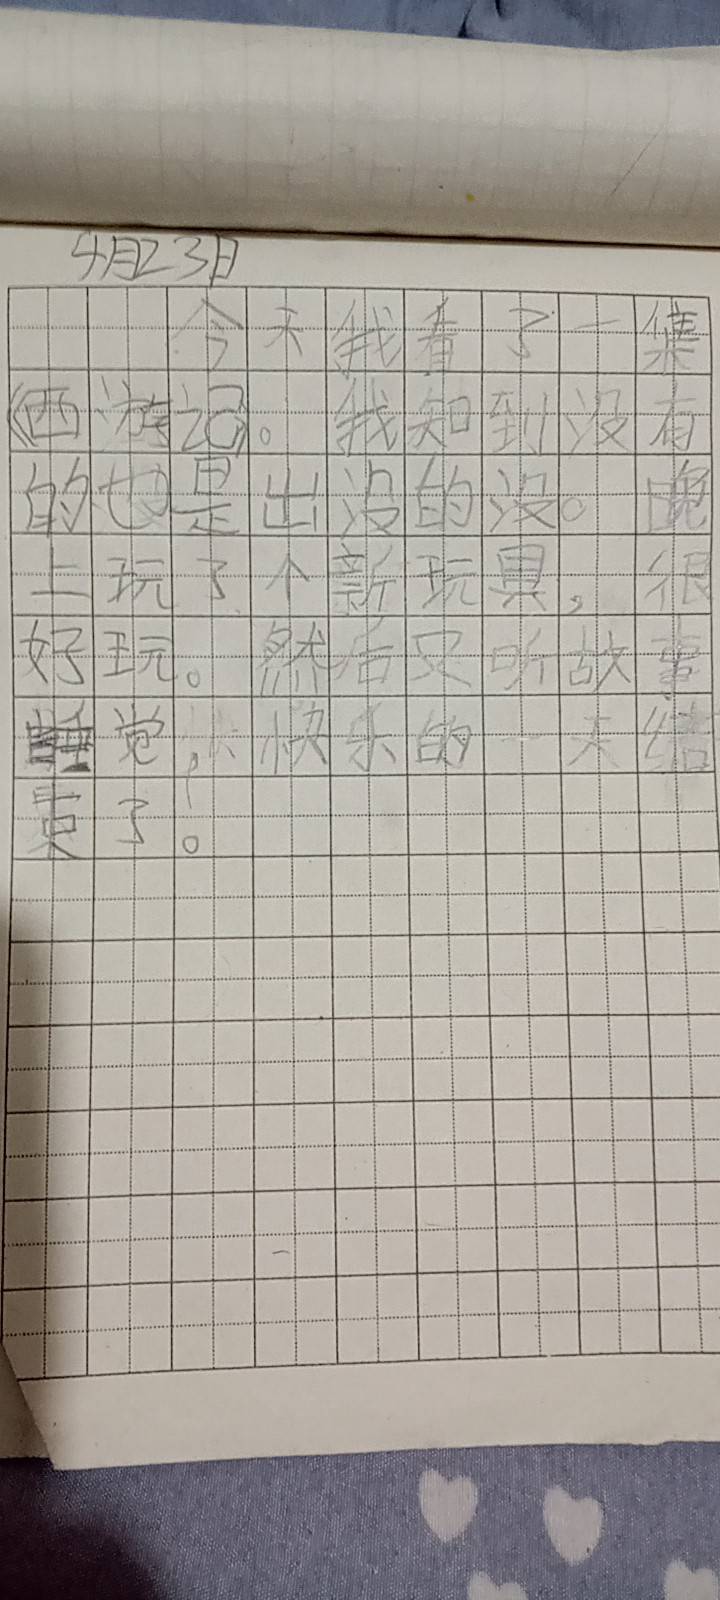 4月23日
今天我看了一集
《西游记》。我知到没有
的也是出没的没。晚
上玩了个新玩具，很
好玩。然后又听故事
睡觉，快乐的一天结
束了。